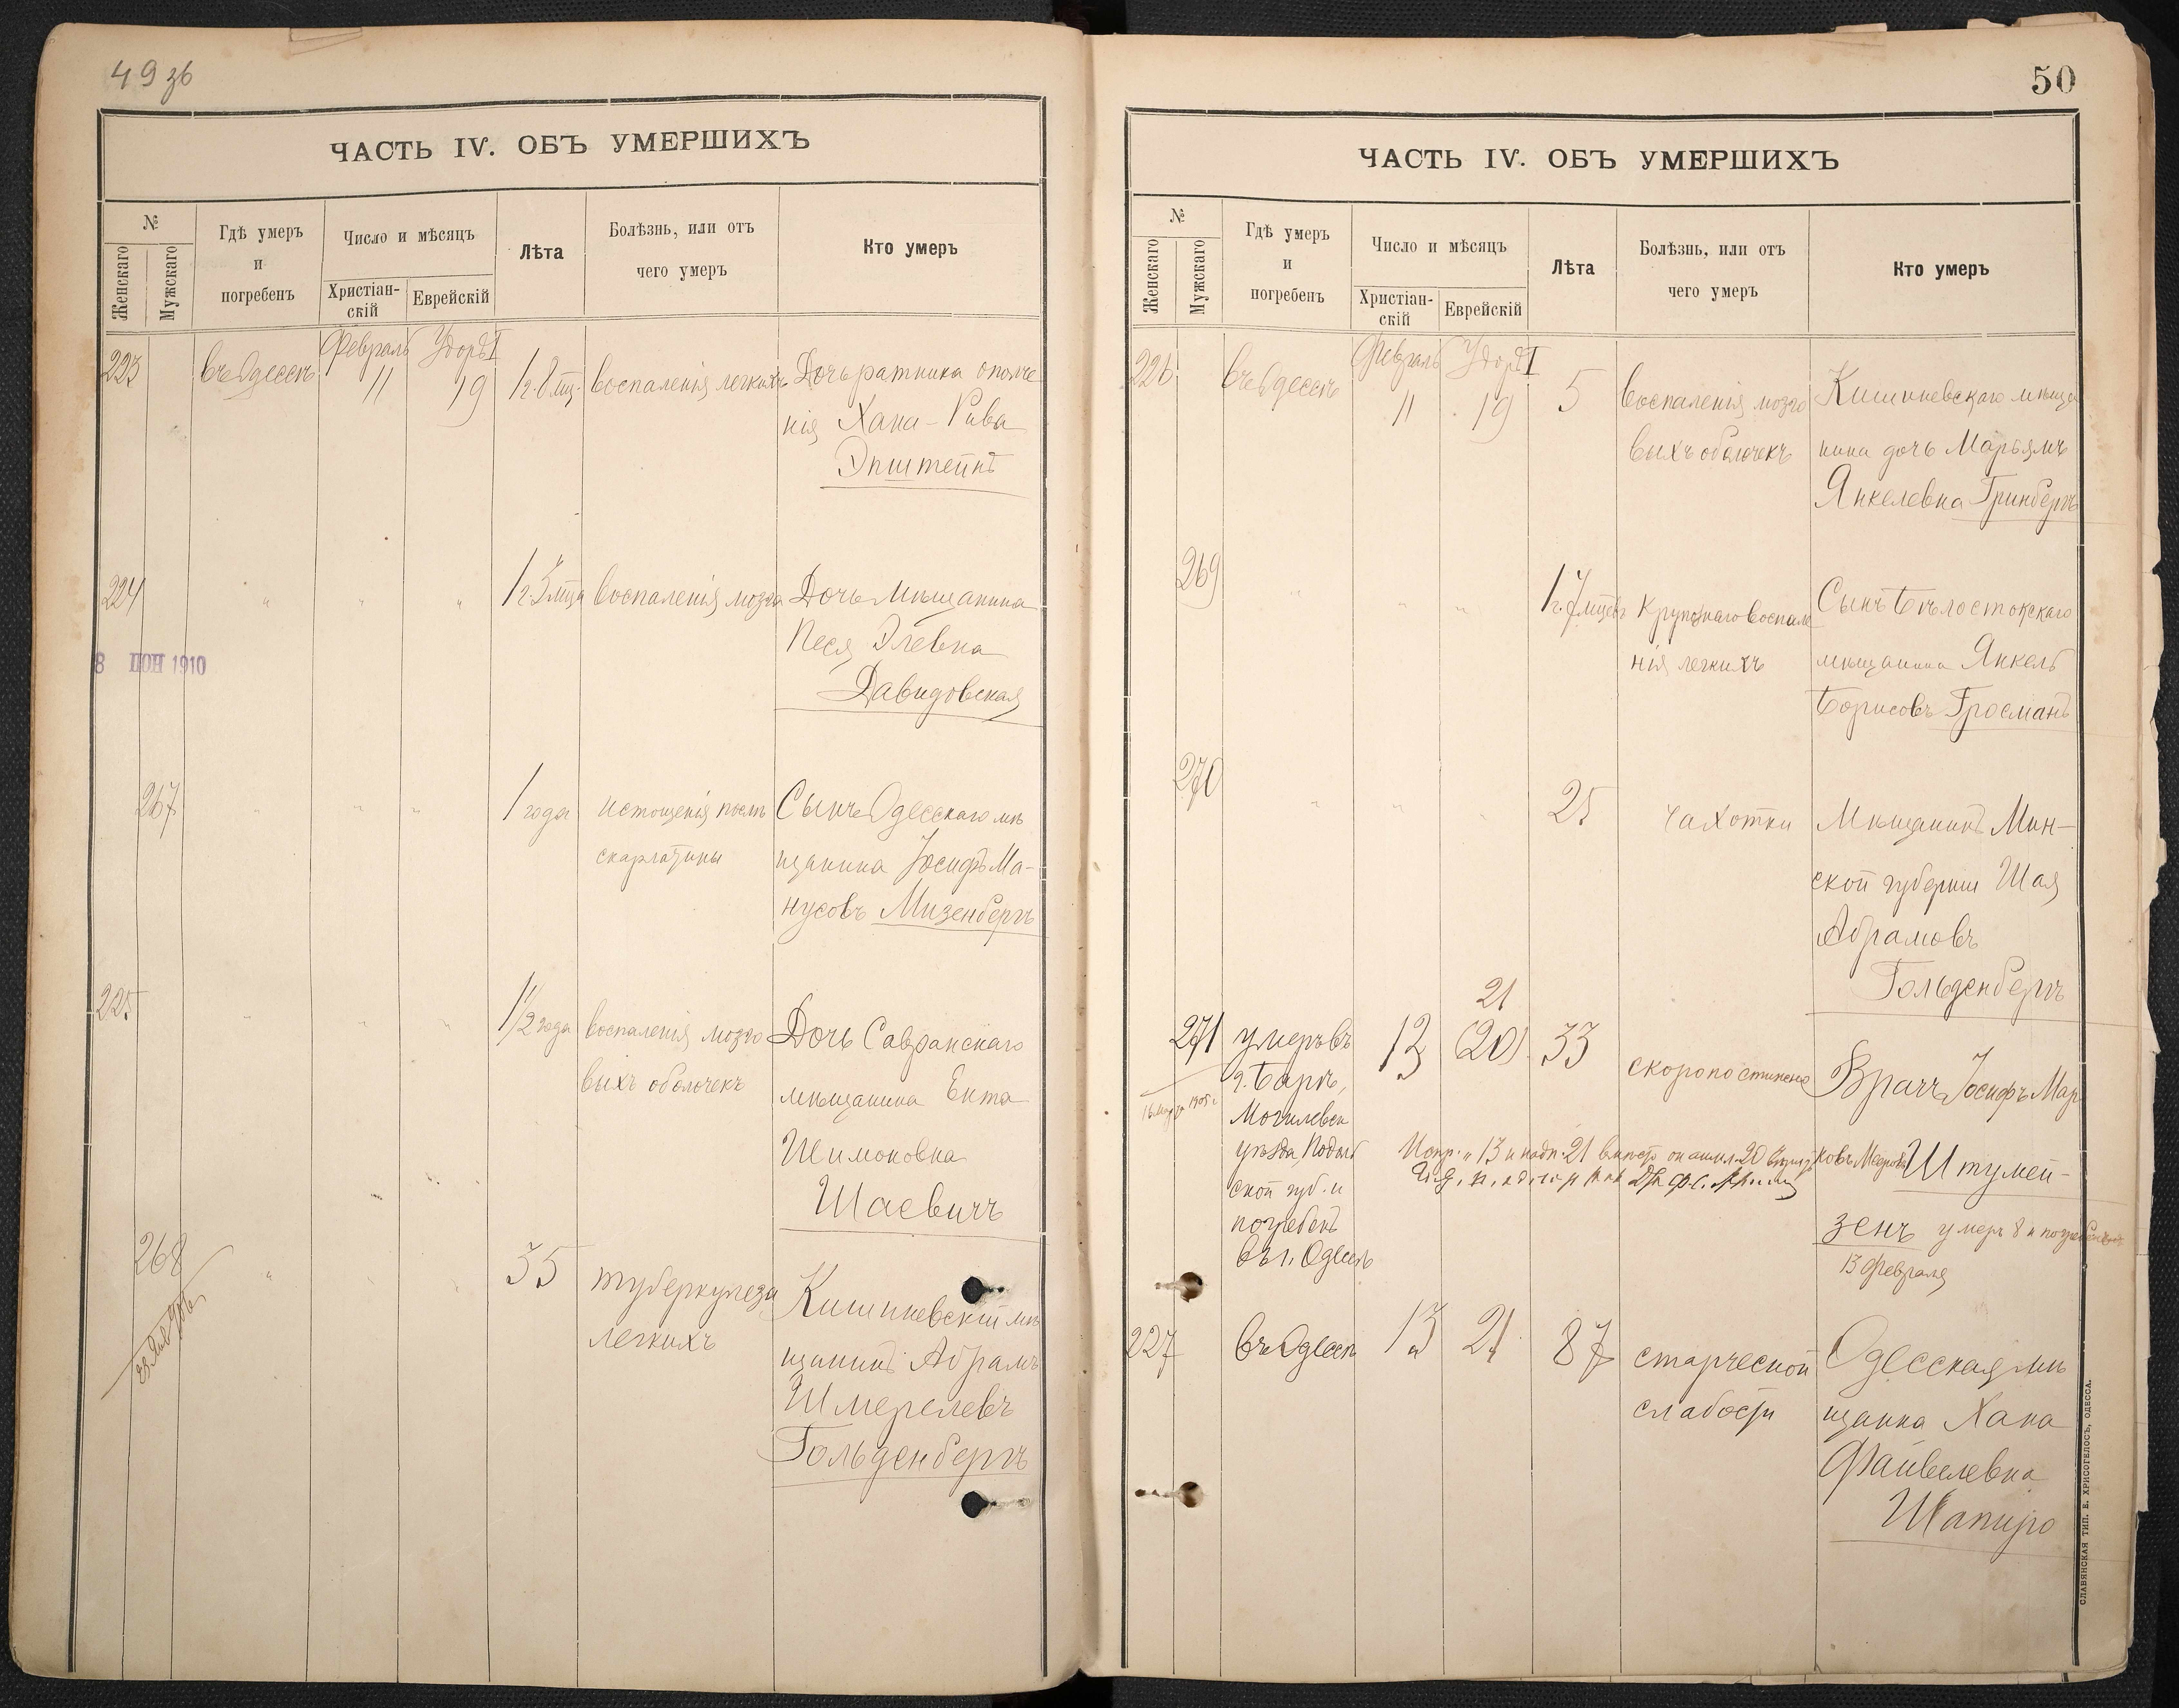 49 зб
ЧАСТЬ IV. ОБЪ УМЕРШИХЪ
№
Женскаго
Мужскаго
Гдѣ умеръ
и
погребенъ
Число и мѣсяцъ
Христіан-
скій
Еврейскій
Лѣта
Болѣзнь, или отъ
чего умеръ
Кто умеръ
Февраль Удоръ I
223 въ Одессѣ 11 19 1 г. 8 мц. воспаленія легкихъ Дочь ратника ополче
нія Хана-Рива
Эпштейнъ
224 " " " 1 г. 5 мца воспаленія мозга Дочь мѣщанина
Песя Элевна
Давидовская
8 ІЮН 1910
267 " " " 1 года истощенія послѣ Сынъ Одесскаго мѣ
скарлатины щанина Іосифъ Ма-
нусовъ Мизенбергъ
225 " " " 1 1/2 года воспаленія мозго Дочь Савранскаго
выхъ оболочекъ мѣщанина Ента
Шимоновна
Шаевичъ
268 " " " 35 туберкулеза Кишиневскій мѣ
легкихъ щанинъ Абрамъ
Шмерелевъ
Гольденбергъ
50
ЧАСТЬ IV. ОБЪ УМЕРШИХЪ
№
Женскаго
Мужскаго
Гдѣ умеръ
и
погребенъ
Число и мѣсяцъ
Христіан-
скій
Еврейскій
Лѣта
Болѣзнь, или отъ
чего умеръ
Кто умеръ
Февраль Удоръ I
226 въ Одессѣ 11 19 5 воспаленія мозго Кишиневскаго мѣща
выхъ оболочекъ нина дочь Марьямъ
Янкелевна Гринбергъ
269 " " " 1 г. 7 мцевъ Крупознаго воспале Сынъ Бѣлостокскаго
нія легкихъ мѣщанина Янкель
Борисовъ Гросманъ
270 " " " 25 чахотки Мѣщанинъ Мин-
ской губерніи Шая
Абрамовъ
Гольденбергъ
21
271 умеръ въ 13 (20) 33 скоропостижно Врачъ Іосифъ Мар
г. Барѣ,
Могилевск
уѣзда, Подоль
ской губ. и
погребенъ
въ г. Одессѣ
Испр. "13 и надп. 21 вмѣсто 20
ковъ Штумей-
зенъ умеръ 8 и погребенъ
13 Февраля
227 въ Одессѣ 13 21 87 старческой Одесская мѣ
слабости щанка Хана
Файвелевна
Шапиро
СЛАВЯНСКАЯ ТИП. Е. ХРИСОГЕЛОСЪ, ОДЕССА.